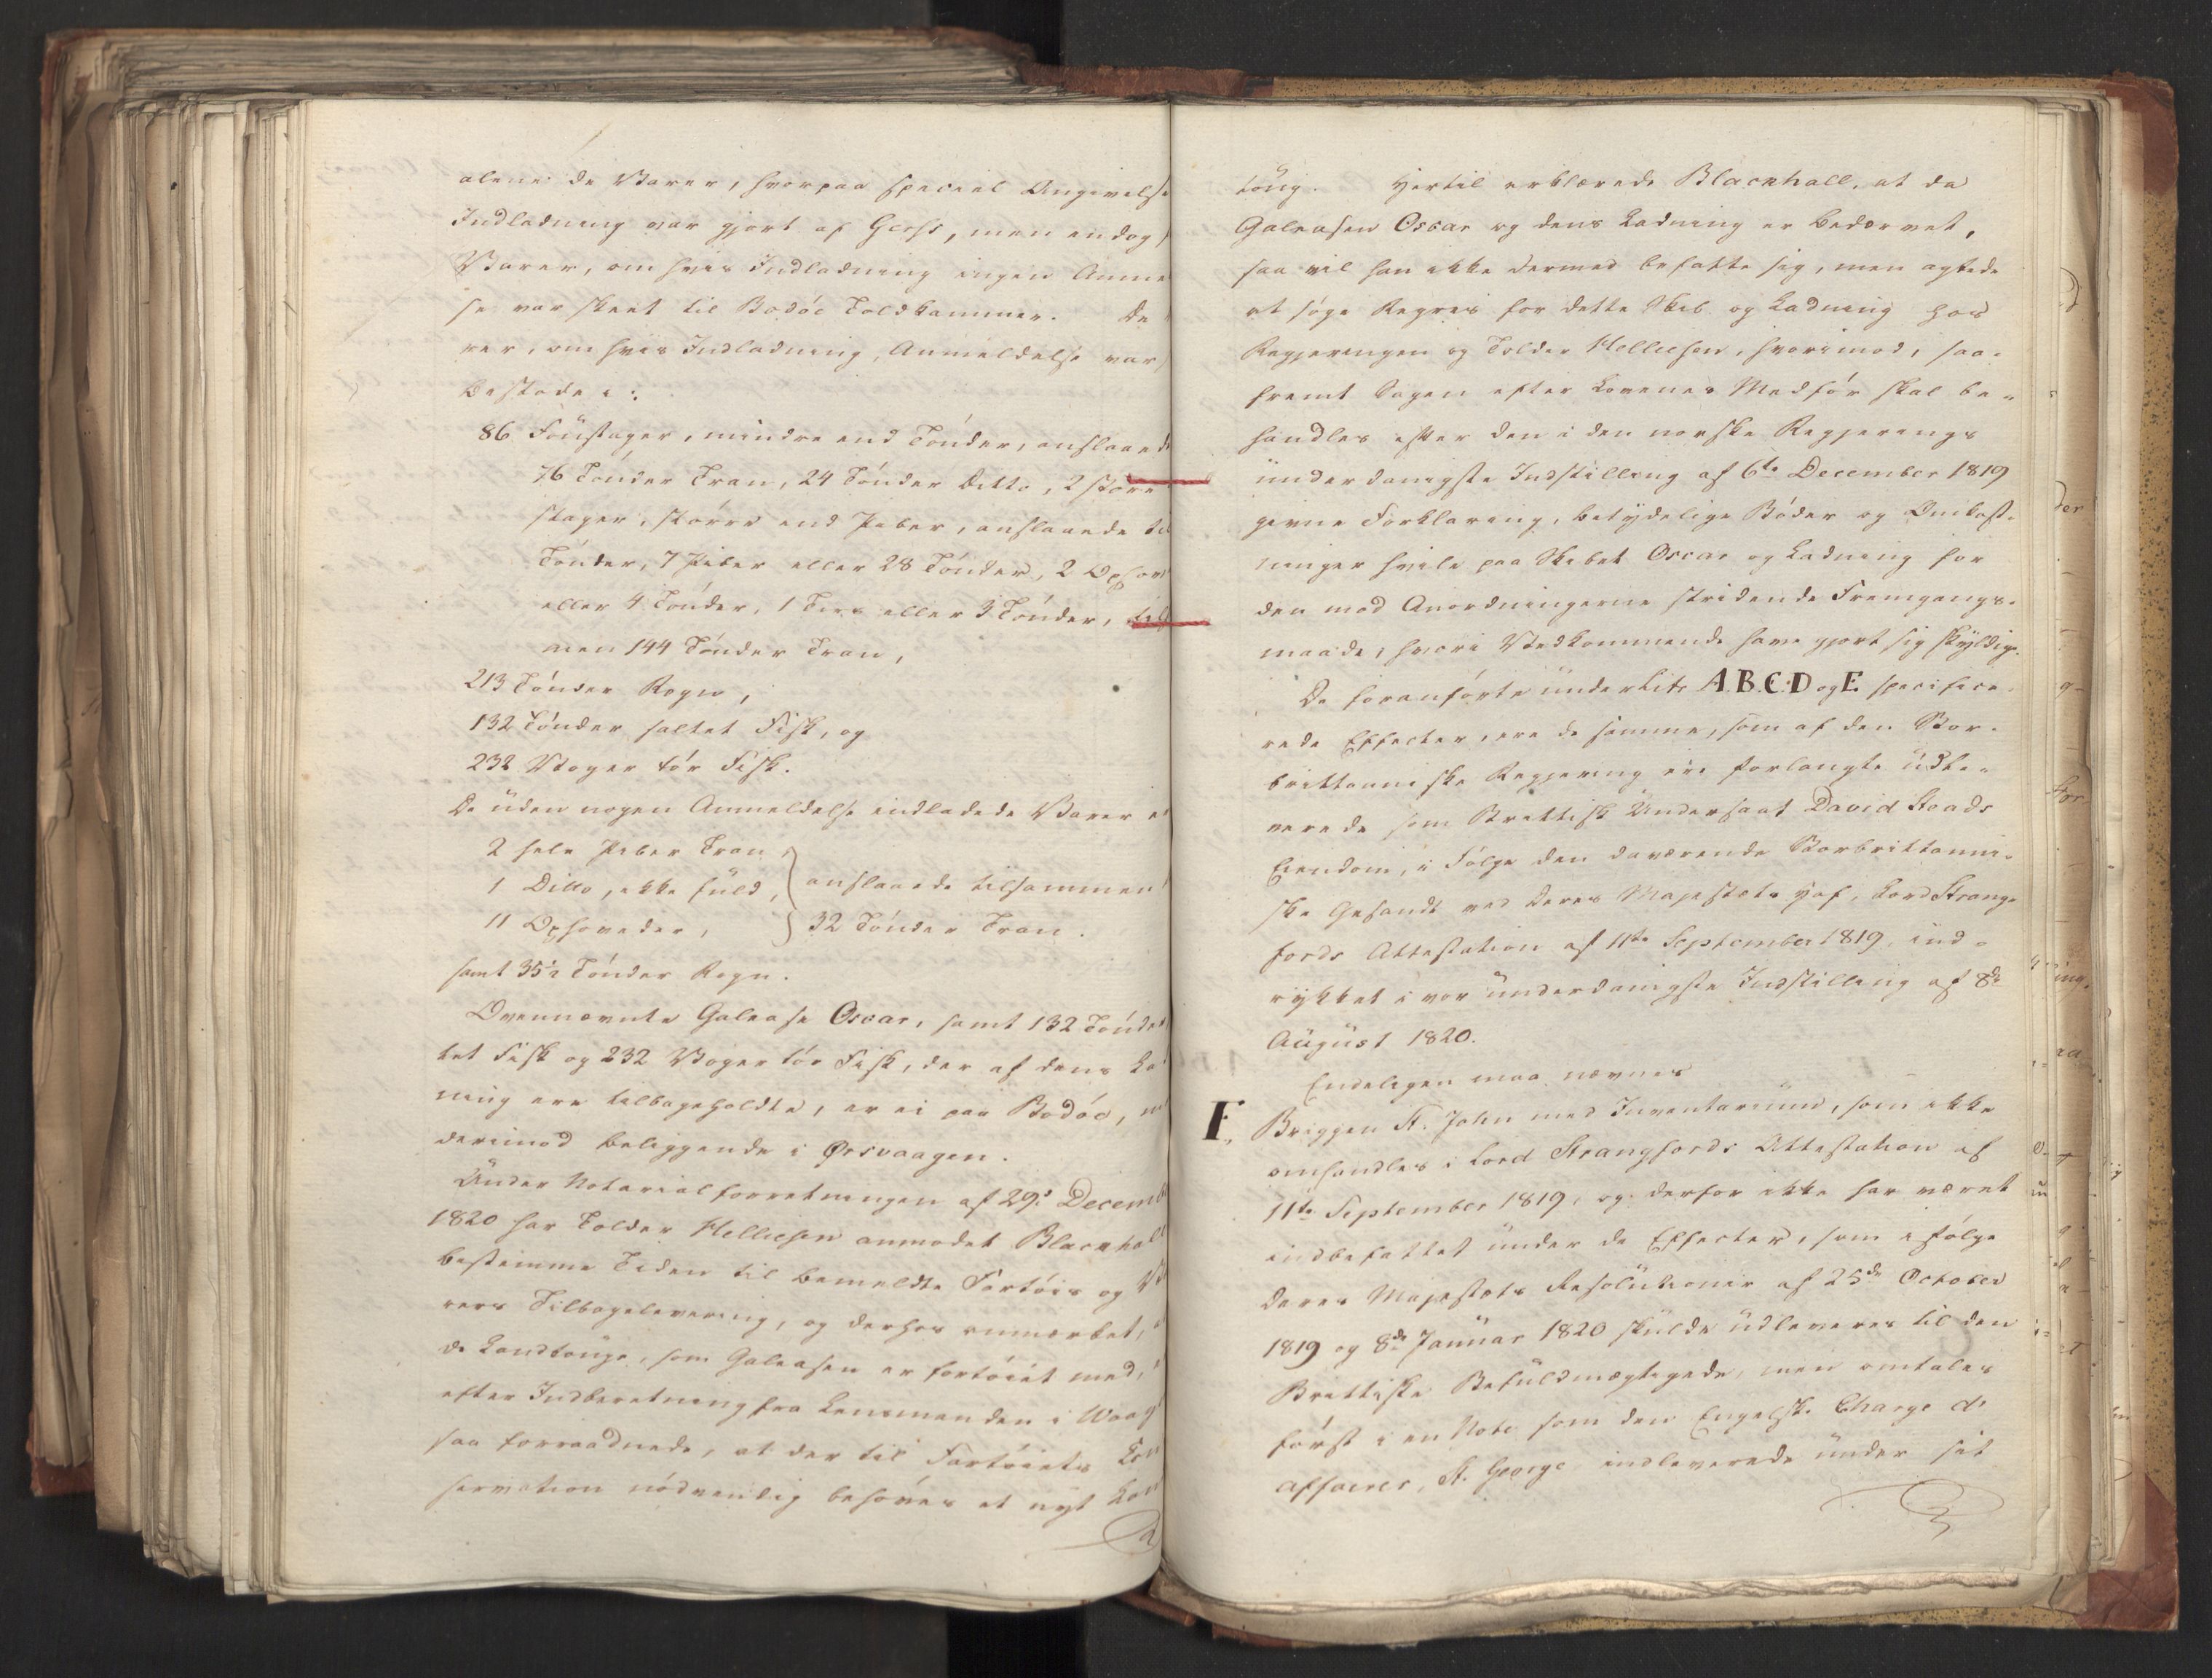 alene de Varer, hvorpaa speciel Angivelse
Indladning var gjort af Gerss, men endog
Varer, om hvis Indladning ingen Anme
se var skeet til Bodöe Toldkammer. De
rer, om hvis Indladning, Anmeldelse var
bestode i:
86 Foustager, mindre end Tönder, anslaaede
76 Tönder Tran, 24 Tönder Ditto, 2 store
stager, större end Piber, anslaaede til
Tönder, 7 Piber eller 28 Tönder, 2 Oxhov
eller 4 Tönder, 1 Ters eller 3 Tönder, tils
men 144 Tönder Tran,
213 Tönder Rogn,
132 Tönder saltet Fisk, og
232 Voger tör Fisk.
De uden nogen Anmeldelse indladede Varer e
2 hele Piber Tran,
1 Ditto, ikke fuld, anslaaede tilsammen
11 Oxhoveder, 32 Tönder Tran.
samt 35½ Tönder Rogn.
Ovennævnte Galease Oscar, samt 132 Tönder
tet Fisk og 232 Voger tör Fisk, der af dens La
ning ere tilbageholdte, er ei paa Bodöe, m
derimod beliggende i Örsvaagen.
Under Notarialforretningen af 29de Decemb
1820 har Tolder Helliesen anmodet Blackhall
bestemme Tiden til bemeldte Fartöis og V
rers Tilbagelevering, og derhos anmærket, a
de Landtouge, som Galeasen er fortöiet med,
efter Indberetning fra Lensmanden i Waag
saa forraadnede, at der til Fartöiets Con
servation nödvendig behöves et nyt Lan
toug. Hertil erklærede Blackhall, at da
Galeasen Oscar og dens Ladning er bedærvet,
saa vil han ikke dermed befatte sig, men agtede
at söge Regres for dette Skib og Ladning hos
Regjeringen og Tolder Helliesen, hvorimod, saa-
fremt Sagen efter Lovenes Medför skal be-
handles efter den i den norske Regjerings
underdanigste Indstilling af 6te December 1819
givne Forklaring, betydelige Böder og Omkost-
ninger hvile paa Skibet Oscar og Ladning for
den mod Anordningerne stridende Fremgangs-
maade, hvori Vedkommende have gjort sig skyldige.
De foranförte under Litr A. B. C. D og E specifice-
rede Effecter, ere de samme, som af den Stor-
brittanniske Regjering ere forlangte udle-
verede som Brittisk Undersaat David Steads
Eiendom, i Fölge den daværende Storbrittanni-
ske Gesandt ved Deres Majestæts Hof, Lord Strang-
fords Attestation af 11te September 1819, ind-
rykket i vor underdanigste Indstilling af 8de
August 1820.
Endeligen maa nævnes
F, Briggen St. John med Inventarium, som ikke
omhandles i Lord Strangfords Attestation af
11te September 1819, og derfor ikke har været
indbefattet under de Effecter, som i fölge
Deres Majestæts Resolutioner af 25de October
1819 og 8de Januar 1820 skulde udleveres til den
Brittiske Befuldmægtigede, men omtales
först i en Note som den Engelske Charge d'
affaires, St. George indleverede under sit